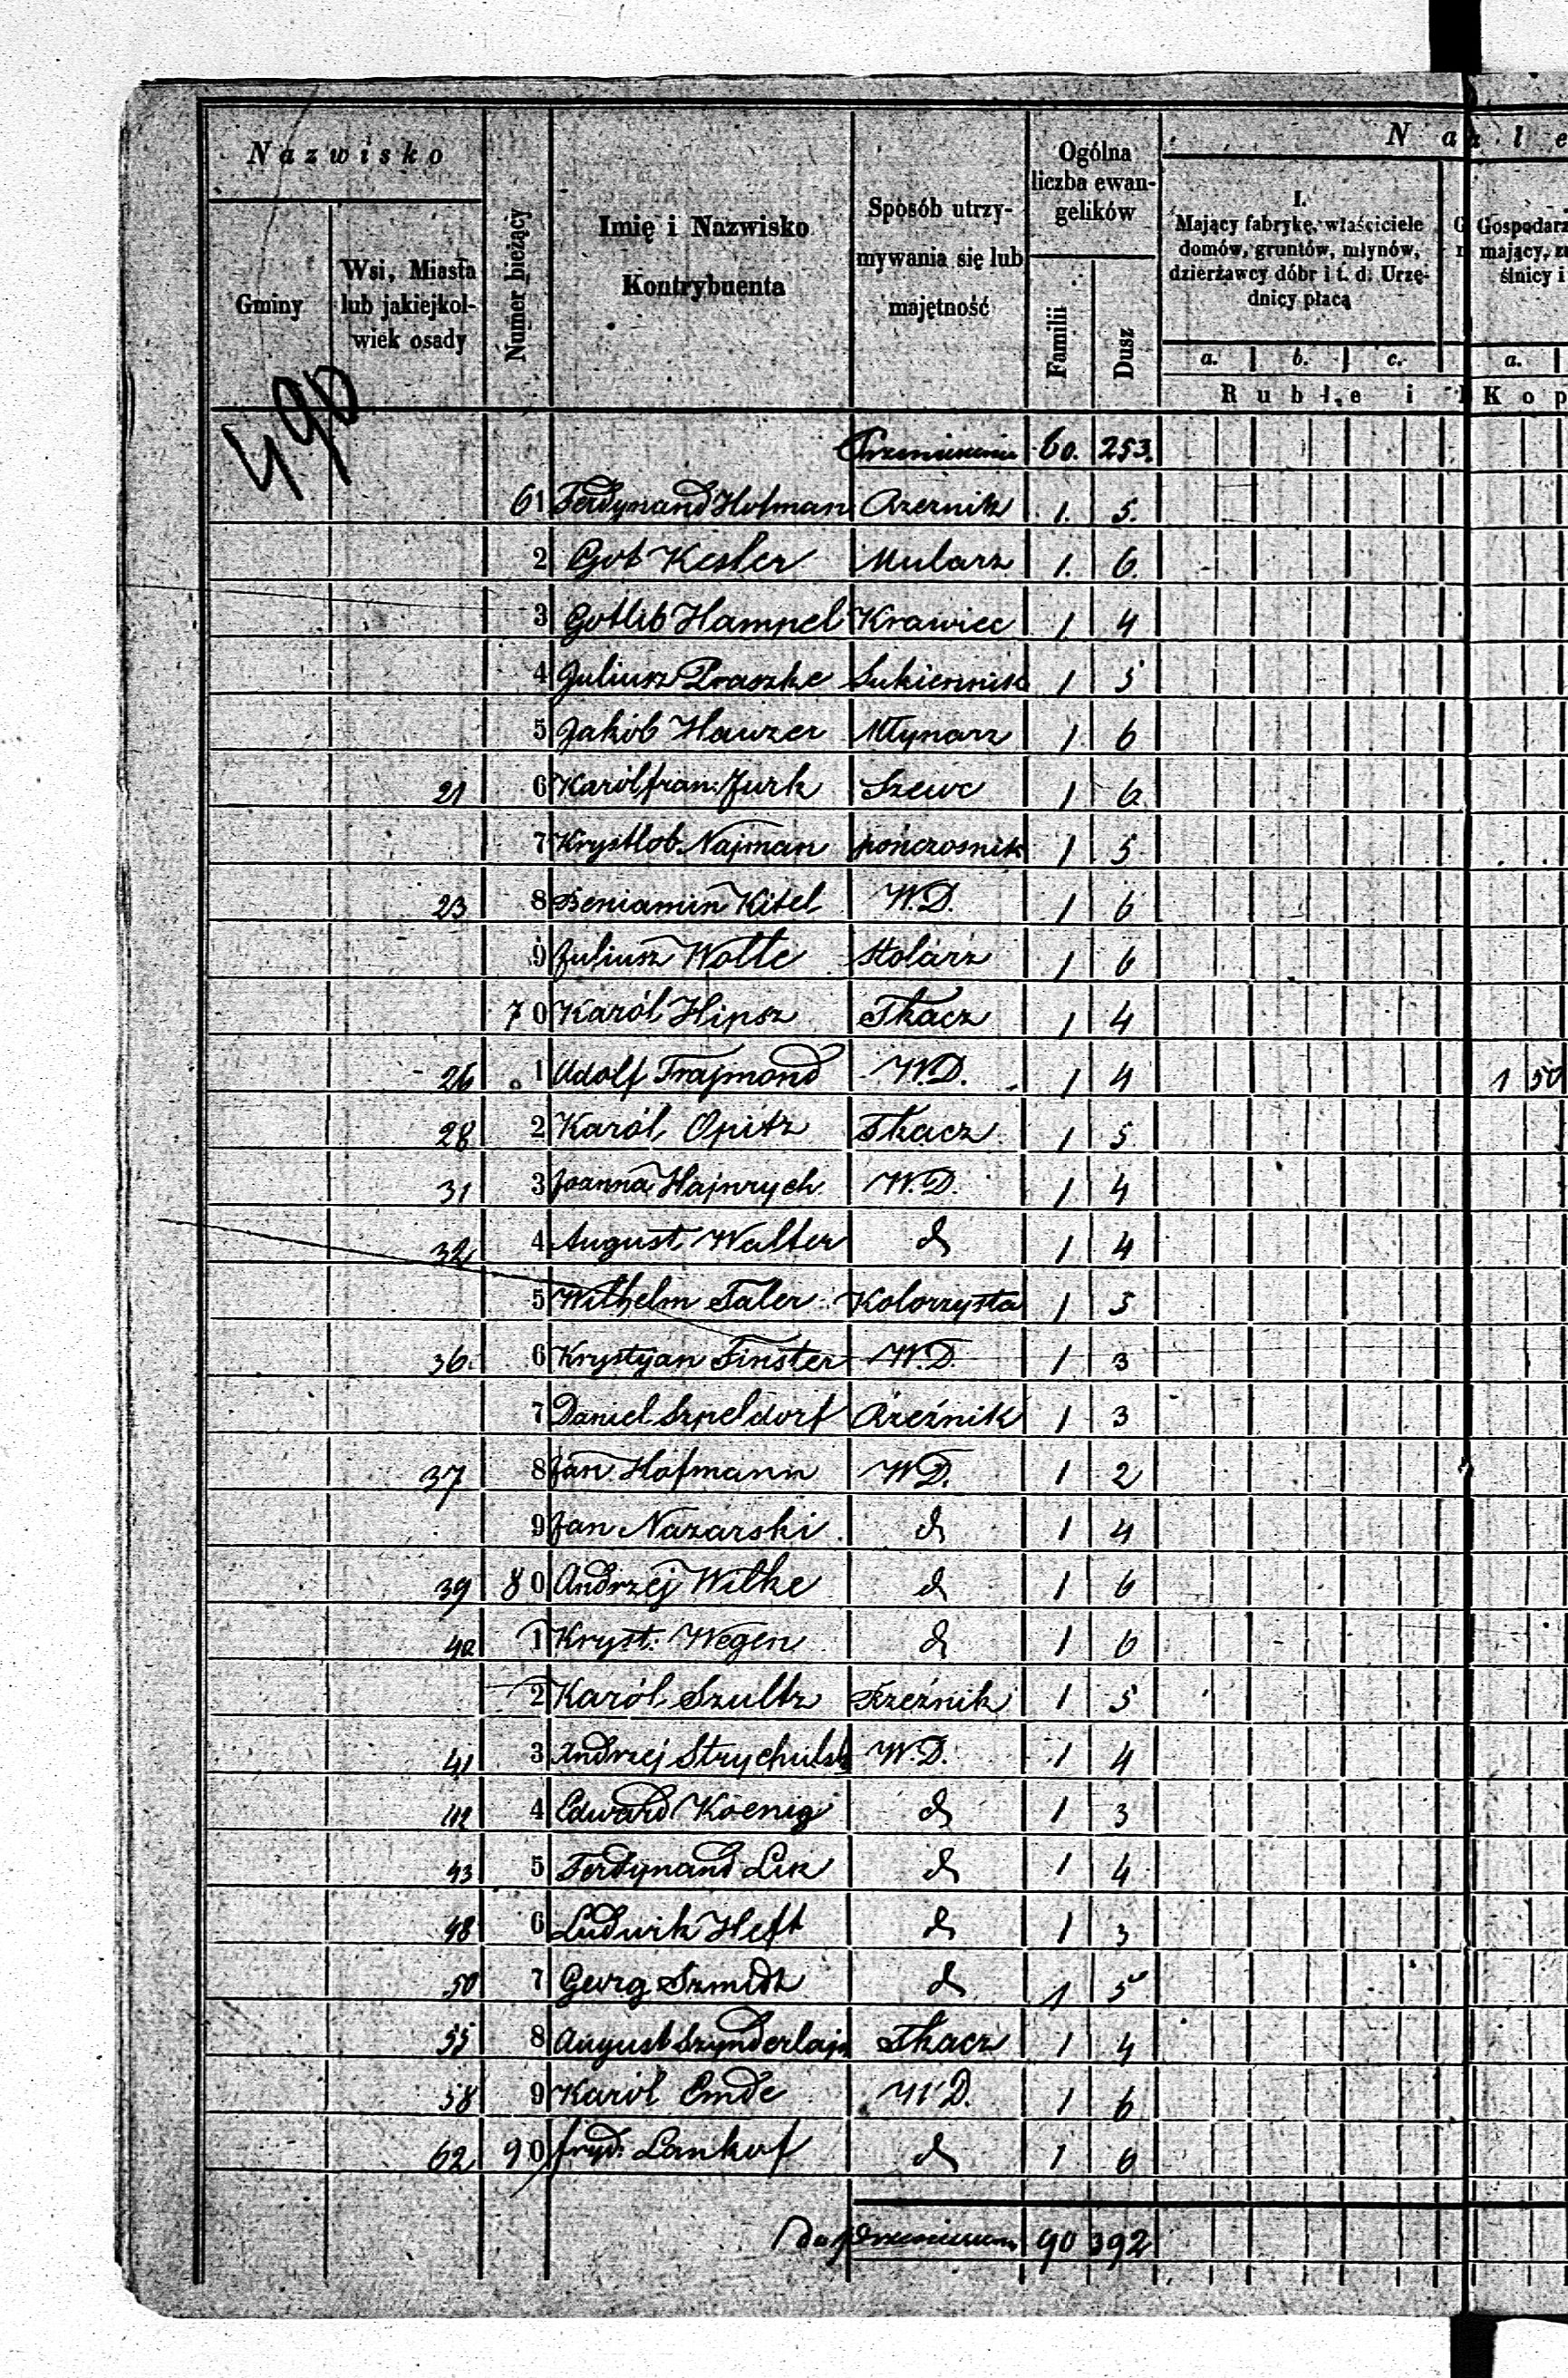 Nazwisko
Gminy
Wsi, Miasta lub jakiejkol- wiek osady
Numer bieżący
Imię i Nazwisko Kontrybuenta
Sposób utrzy- mywania się lub majętność
Ogólna liczba ewan- gelików
Familii
Dusz
N a l e
I.
Mający fabrykę, właściciele domów, gruntów, młynów, dzierżawcy dóbr i t. d. Urzę- dnicy płacą
Gospodarz mający, ślnicy i
a. b. c. a.
Ruble i Kop
490
60. 253.
61 Ferdynand Hofman 1. 5.
2 Got Kesler Mularz 1. 6.
3 Gotlib Hampel Krawiec 1 4
4 Juliusz Praszke Sukiennik 1 5
5 Jakób Hauzer Młynarz 1 6
21 6 Karól fran: Jurk Szewc 1 6
7 Krystlob Najman pończosnik 1 5
23 8 Beniamin Kitel W.D. 1 6
9 Juliusz Wolle Stolarz 1 6
70 Karól Hipsz Tkacz 1 4
26 1 Adolf Trajmond W.D. 1 4 1 50
28 2 Karól Opitz Tkacz 1 5
31 3 Joanna Hajnrych W.D. 1 4
32 4 August Walter d 1 4
5 Wilhelm Taler Kolorzysta 1 5
36. 6 Krystyan Finster W.D. 1 3
7 Daniel Szpeldorf 1 3
37 8 Jan Hofmann W.D. 1 2
9 Jan Nazarski d 1 4
39 80 Andrzej Wilke d 1 6
40 1 Kryst: Wegen d 1 6
2 Karól Szultz Rzeźnik 1 5
41 3 Andrzej W.D. 1 4
42 4 Edward Koenig d 1 3
43 5 Ferdynand Lik d 1 4
48 6 Ludwik Heft d 1 3
50 7 Georg Szmidt d 1 5
55 8 August Szynderlajn Tkacz 1 4
58 9 Karól Emde W.D. 1 6
62 90 fryd: Lankof d 1 6
90 392